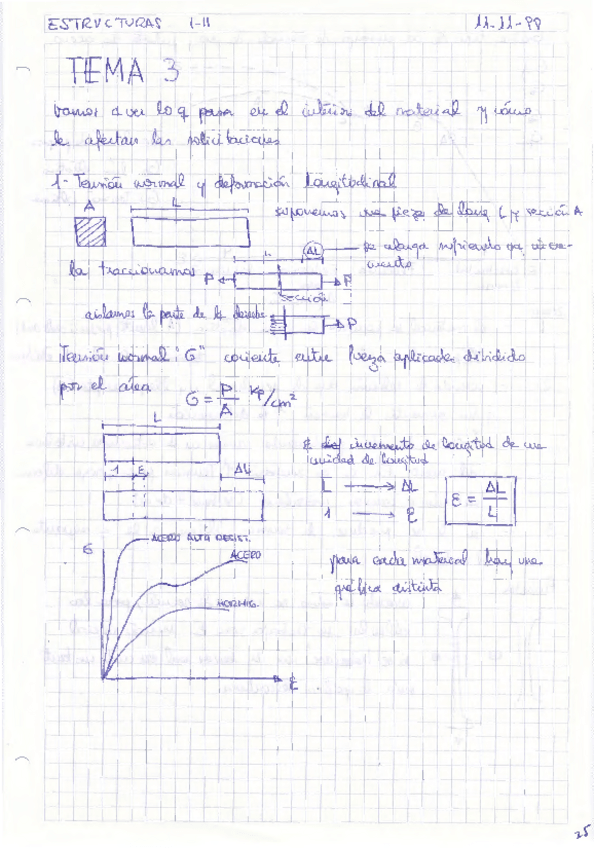 ESTRUCTURAS I-II 11-11-98
TEMA 3
vamos a ver lo q pasa en el interior del material y cómo
le afectan las solicitaciones
1- Tensión normal y deformación longitudinal
A L suponemos una pieza de long L y sección A
L ΔL se alarga sufriendo un incre-
mento
la traccionamos P P
sección
aislamos la parte de la derecha P
Tensión normal "σ" cociente entre fuerza aplicada dividido
por el área σ = P/A Kp/cm²
L
ε incremento de longitud de una
unidad de longitud
1 ε ΔL
L → ΔL
1 → ε
ε = ΔL/L
σ
ACERO ALTA RESIST.
ACERO
HORMIG.
ε
para cada material hay una
gráfica distinta
25